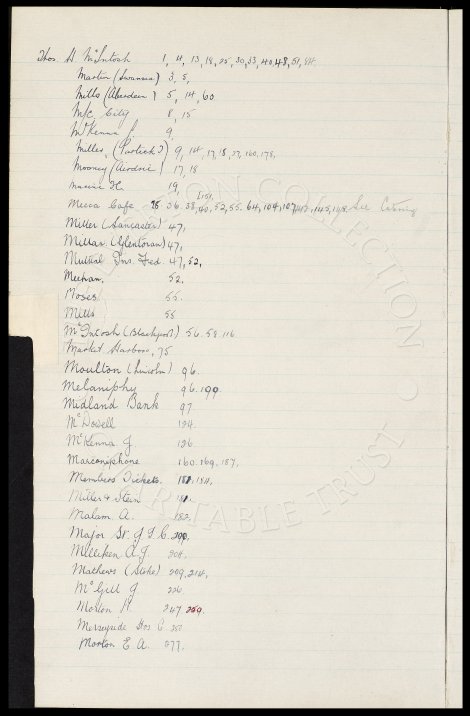 Thos. H. McIntosh 1, 4, 13, 18, 25, 30, 33, 40, 48, 51, 84
Martin (Swansea) 3, 5,
Mills (Aberdeen) 5, 14, 60
M/c. City 8, 15
McKenna 9
Miller, (Partick T) 9, 14, 17, 18, 37, 160, 178,
Mooney (Airdrie) 17, 18
H. 19,
Mecca Cafe 36, 38, 40, 52, 55, 64, 104, 107, 145, See Catering
Miller (Lancaster) 47,
Millar (Glentoran) 47,
Mutual Ins. Fed. 47, 52,
Meehan, 52.
Moses 55.
Mills 55
McIntosh (Blackpool) 56. 58. 116
Market Harboro, 75
Moulton (Lincoln) 96.
Melaniphy 96. 199.
Midland Bank 97
McDowell 124.
McKenna J. 126
Marconiphone 160. 169. 187,
Members Tickets. 181. 184,
Miller & Stein 181.
Malam A. 182.
Major Sr. J. F. C. 200.
Milliken A. J. 208.
Mathews (Stoke) 209, 214,
McGill J 226
Morton H. 247 259.
Merseyside Hos. C. 257
Morton E. A. 277.
COLLECTION
CHARITABLE TRUST